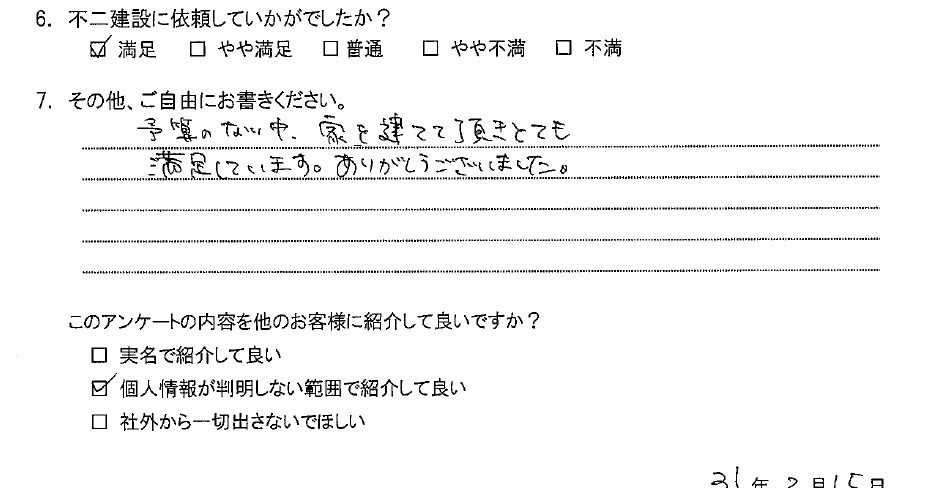 6. 不二建設に依頼していかがでしたか？
☑ 満足 □ やや満足 □ 普通 □ やや不満 □ 不満
7. その他、ご自由にお書きください。
予算のない中、家を建てて頂きとても
満足しています。ありがとうございました。
このアンケートの内容を他のお客様に紹介して良いですか？
□ 実名で紹介して良い
☑ 個人情報が判明しない範囲で紹介して良い
□ 社外から一切出さないでほしい
31年2月15日